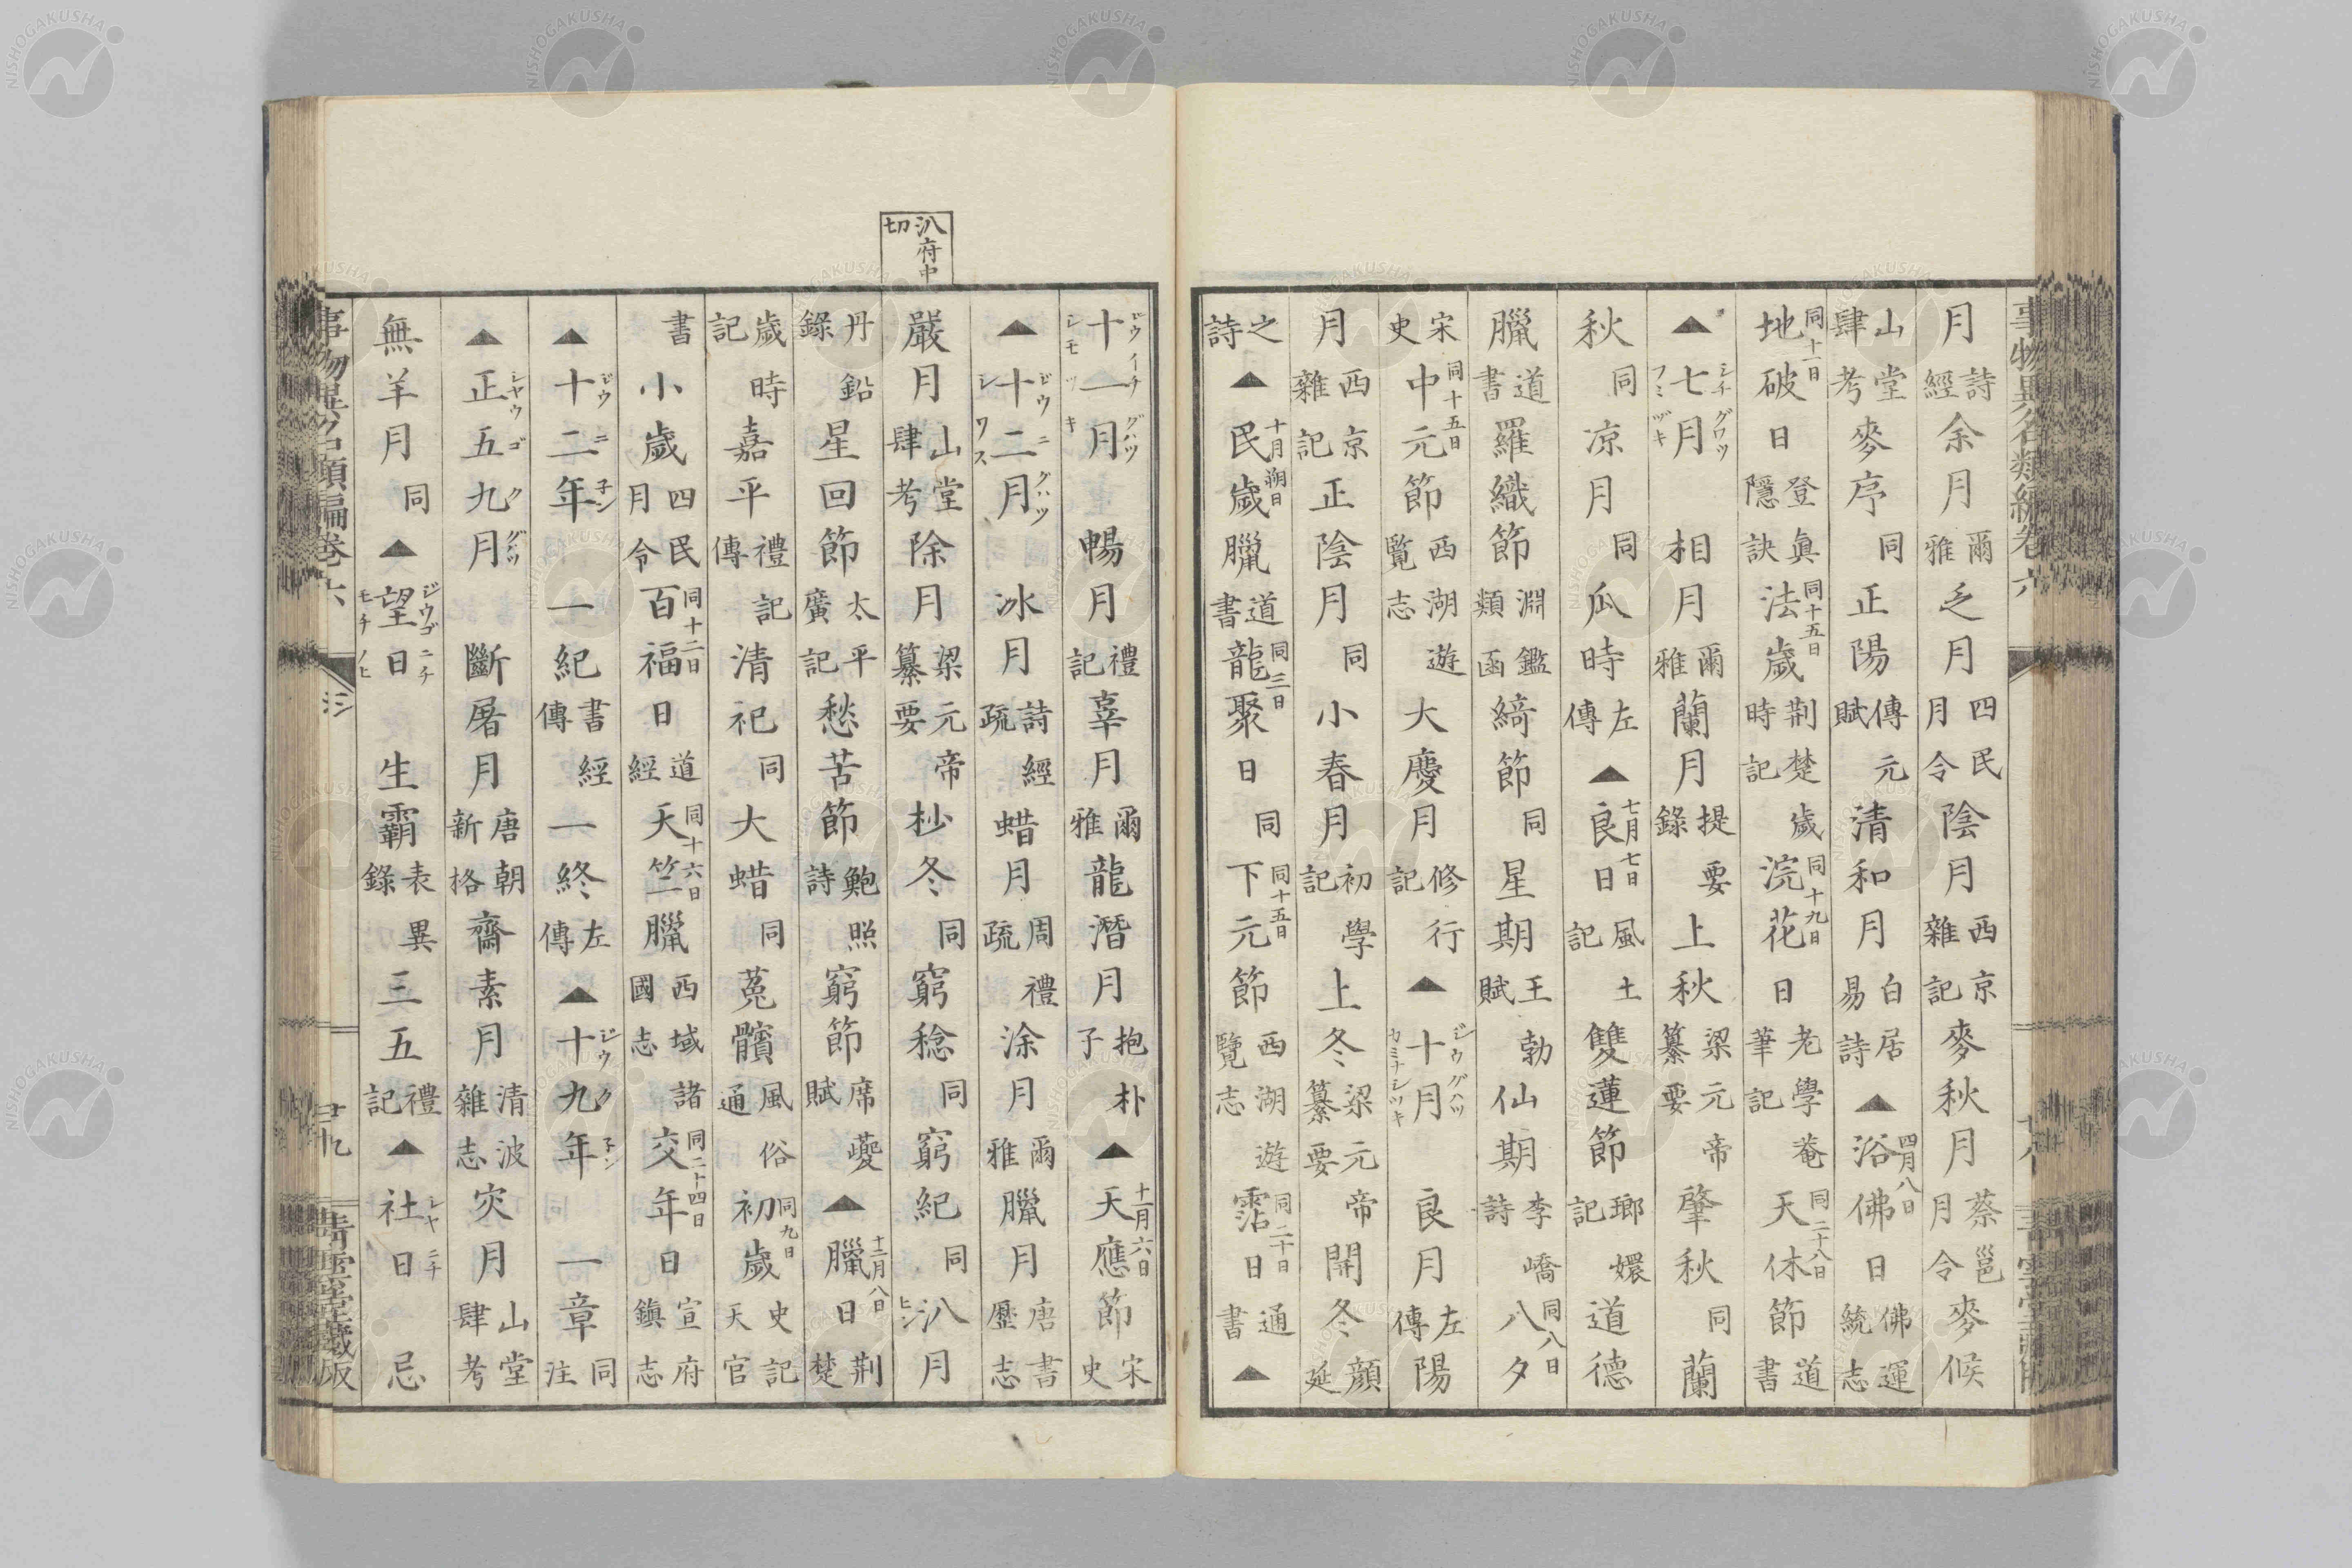 月詩經余月爾雅乏月四民月令陰月西京雜記麥秋月蔡邕月令麥候
山堂肆考麥序同正陽傅元賦清和月白居易詩▲浴佛日四月八日佛運統志
地破日同十一日登眞隱訣法歲同十五日荆楚歲時記浣花日同十九日老學菴筆記天休節同二十八日道書
▲七月シチグワツフミヅキ相月爾雅蘭月提要錄上秋梁元帝纂要肇秋同蘭
秋同凉月同瓜時左傳▲良日七月七日風土記雙蓮節瑯嬛記道德
臘道書羅織節淵鑑類函綺節同星期王勃賦仙期李嶠詩八夕同八日
宋史中元節同十五日西湖遊覽志大慶月修行記▲十月ジウグハツカミナシツキ良月左傳陽
月西京雜記正陰月同小春月初學記上冬梁元帝纂要開冬顔延
之詩▲民歲臘十月朔日道書龍聚日同三日同下元節同十五日西湖遊覽志霑日同二十日通書▲
十一月ジウイチグハツシモツキ暢月禮記辜月爾雅龍潛月抱朴子▲天應節十一月六日宋史
▲十二月ジウニグハツシワス冰月詩經疏蜡月周禮疏涂月爾雅臘月唐書歷志
嚴月山堂肆考除月梁元帝纂要杪冬同窮稔同窮紀同汃ヒン月
汃府巾切
丹鉛錄星回節太平廣記愁苦節鮑照詩窮節席夔賦▲臘日十二月八日荆楚
歲時記嘉平禮記傳清祀同大蜡同菟髕風俗通初歲同九日史記天官
書小歲四民月令百福日同十二日道經天竺臘同十六日西域諸國志交年日同二十四日宣府鎭志
▲十二年ジウニ子ン一紀書經傳一終左傳▲十九年ジウク子ン一章同注
▲正五九月シヤウゴクグハツ斷屠月唐朝新格齋素月清波雜志灾月山堂肆考
無羊月同▲望日ジウゴニチモチノヒ生霸表異錄三五禮記▲社日シヤニチ忌
事物異名類編卷六
廿九
青雲堂藏版